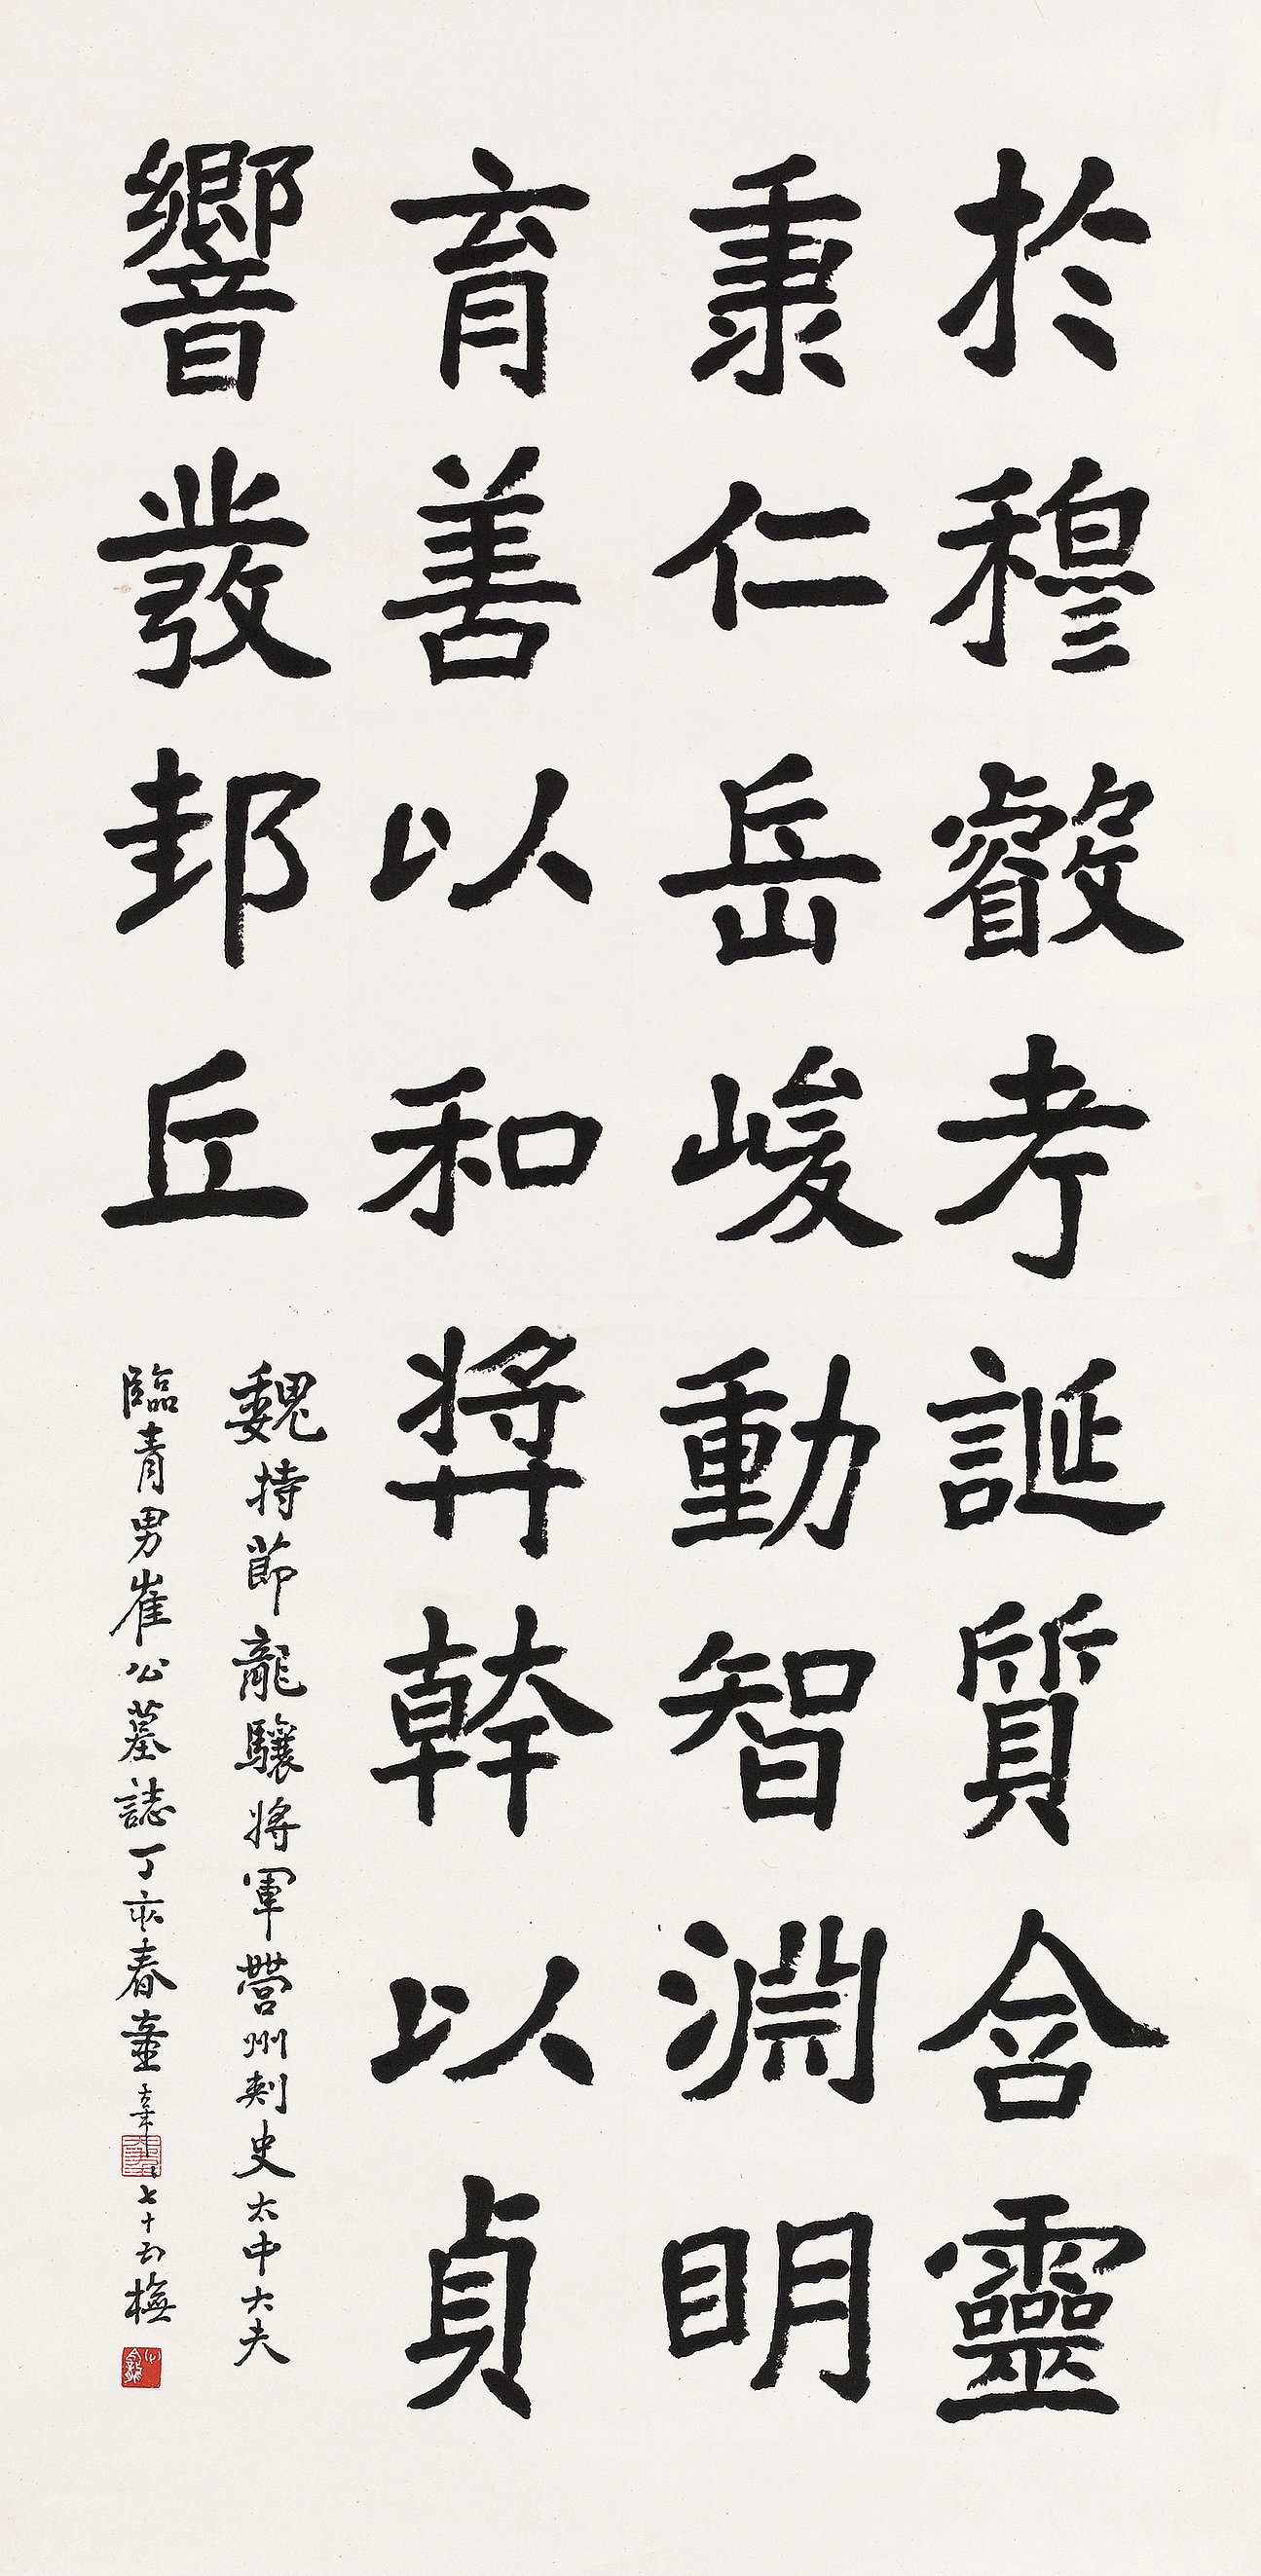 於穆叡考誕質含靈
秉仁岳峻動智淵明
育善以和奬幹以貞
響發邦丘
魏持節龍驤將軍營州刺史太中大夫
臨青男崔公墓誌丁亥春童七十五橅